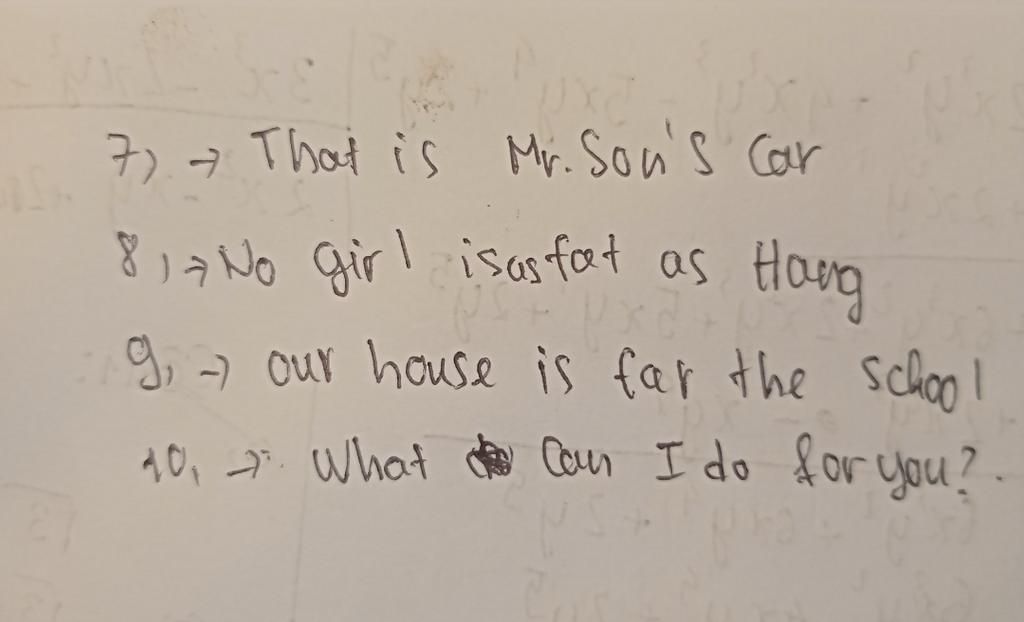 7, → That is Mr. Son's Car
8, → No girl is as fat as Hang
9, → our house is far the school
10, → What Can I do for you?.